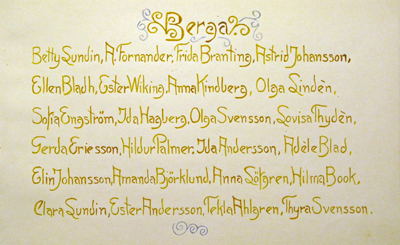 Berga
Betty Sundin, A. Fornander, Frida Branting, Astrid Johansson,
Ellen Bladh, Ester Wiking, Anna Kindberg, Olga Lindèn,
Sofia Engström, Ida Hagberg, Olga Svensson, Lovisa Thydèn,
Gerda Ericsson, Hildur Palmer, Ida Andersson, Adèle Blad,
Elin Johansson, Amanda Björklund, Anna Löfgren, Hilma Book,
Clara Sundin, Ester Andersson, Tekla Ahlgren, Thyra Svensson.